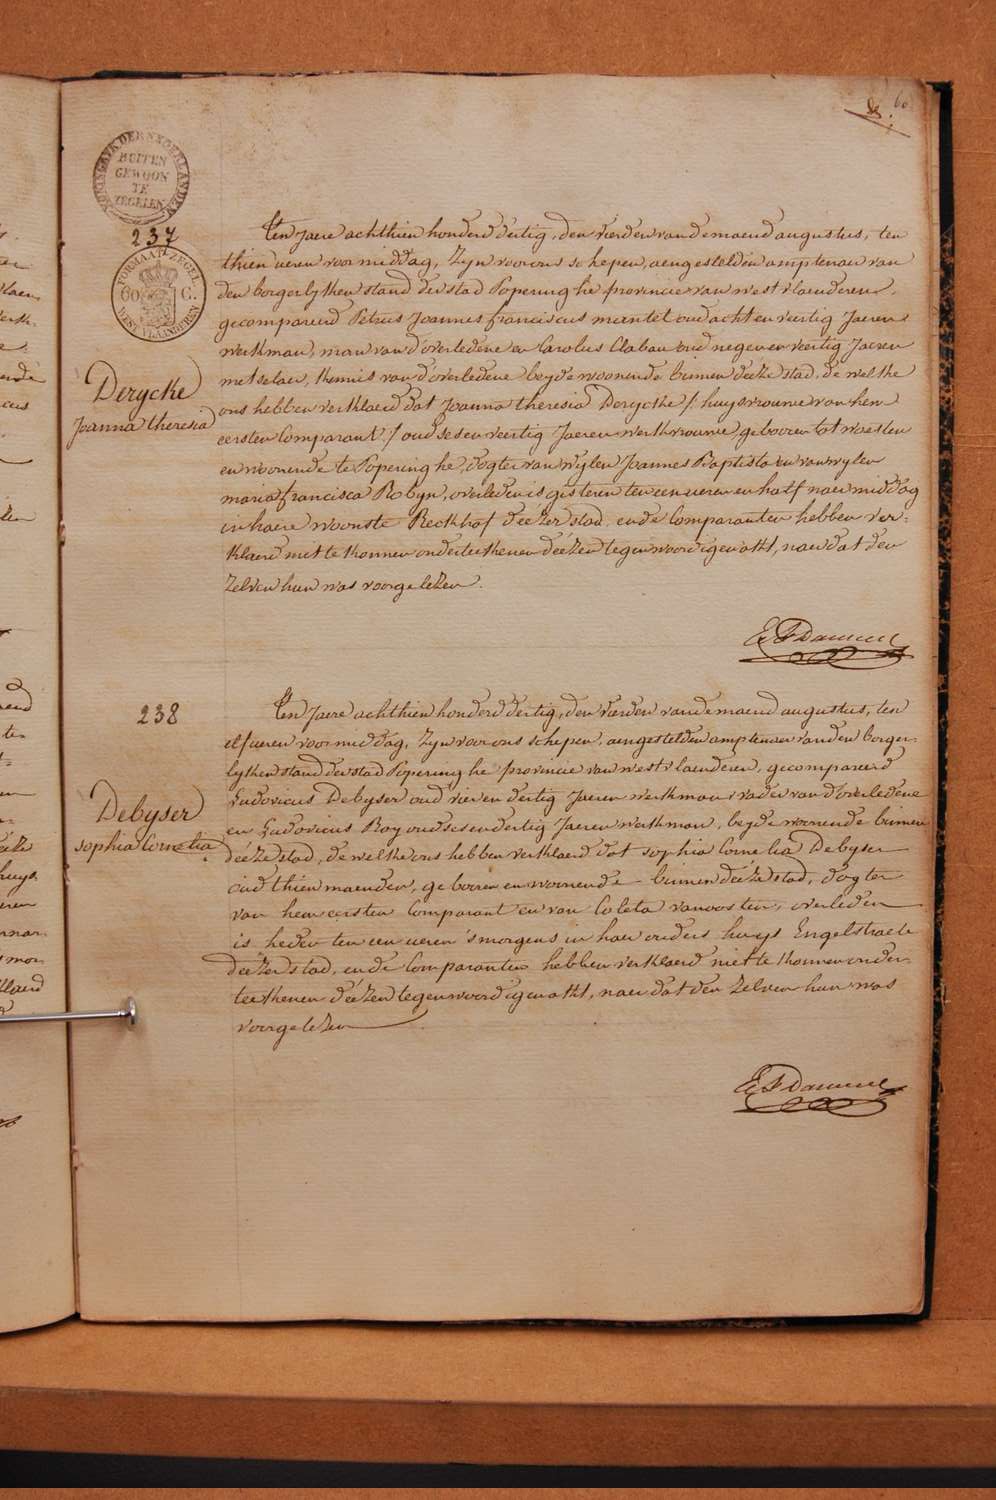 60
KONINGRYK DER NEDERLANDEN
BUITEN
GEWOON
TE
ZEGELEN
237
FORMAAT ZEGEL
60 C.
WEST VLAANDEREN
Derycke
Joanna theresia
Ten Jaere achthien honderd dertig, den vierden van de maend augustus, ten
thien ueren voormiddag, Zyn voor ons schepen, aengestelden amptenaer van
den borgerlyken stand der stad Poperinghe provincie van westvlaenderen,
gecompareerd Petrus Joannes franciscus mantel oud acht en veertig Jaeren
werkman, man van d'overledene en Carolus Clabau oud negen en veertig Jaeren
metselaer, kennis van d'overledene beyde woonende binnen deeze stad, de welke
ons hebben verklaerd dat Joanna theresia Derycke /: huysvrouwe van hem
eersten Comparant :/ oud ses en veertig Jaeren werkvrouwe, gebooren tot woesten
en woonende te Poperinghe, dogter van wylen Joannes Baptista en van wylen
maria francisca Robyn, overleden is gisteren ten een ueren en half naermiddag
in haere woonste Reckhof deezer stad, en de Comparanten hebben ver-
klaerd niet te konnen onderteekenen déézen tegenwoordigen akt, naer dat den
zelven hun was voorgelezen.
238
Debyser
sophia Cornelia
Ten Jaere achthien honderd dertig, den vierden van de maend augustus, ten
elf ueren voormiddag, Zyn voor ons schepen, aengestelden amptenaer van den borger-
lyken stand der stad Poperinghe provincie van westvlaenderen, gecompareerd
Ludovicus Debyser oud vier en dertig Jaeren werkman, vader van d'overledene
en Ludovicus Roy oud ses en dertig Jaeren werkman, beyde woonende binnen
déeze stad, de welke ons hebben verklaerd dat sophia Cornelia Debyser
oud thien maenden, gebooren en woonende binnen déeze stad, dogter
van hem eersten Comparant en van Coleta vanoosten, overleden
is heden ten een ueren 's morgens in haer ouders huys Engelstraete
deezer stad, en de Comparanten hebben verklaerd niet te konnen onder-
teekenen déézen tegenwoordigen akt, naer dat den zelven hun was
voorgelezen